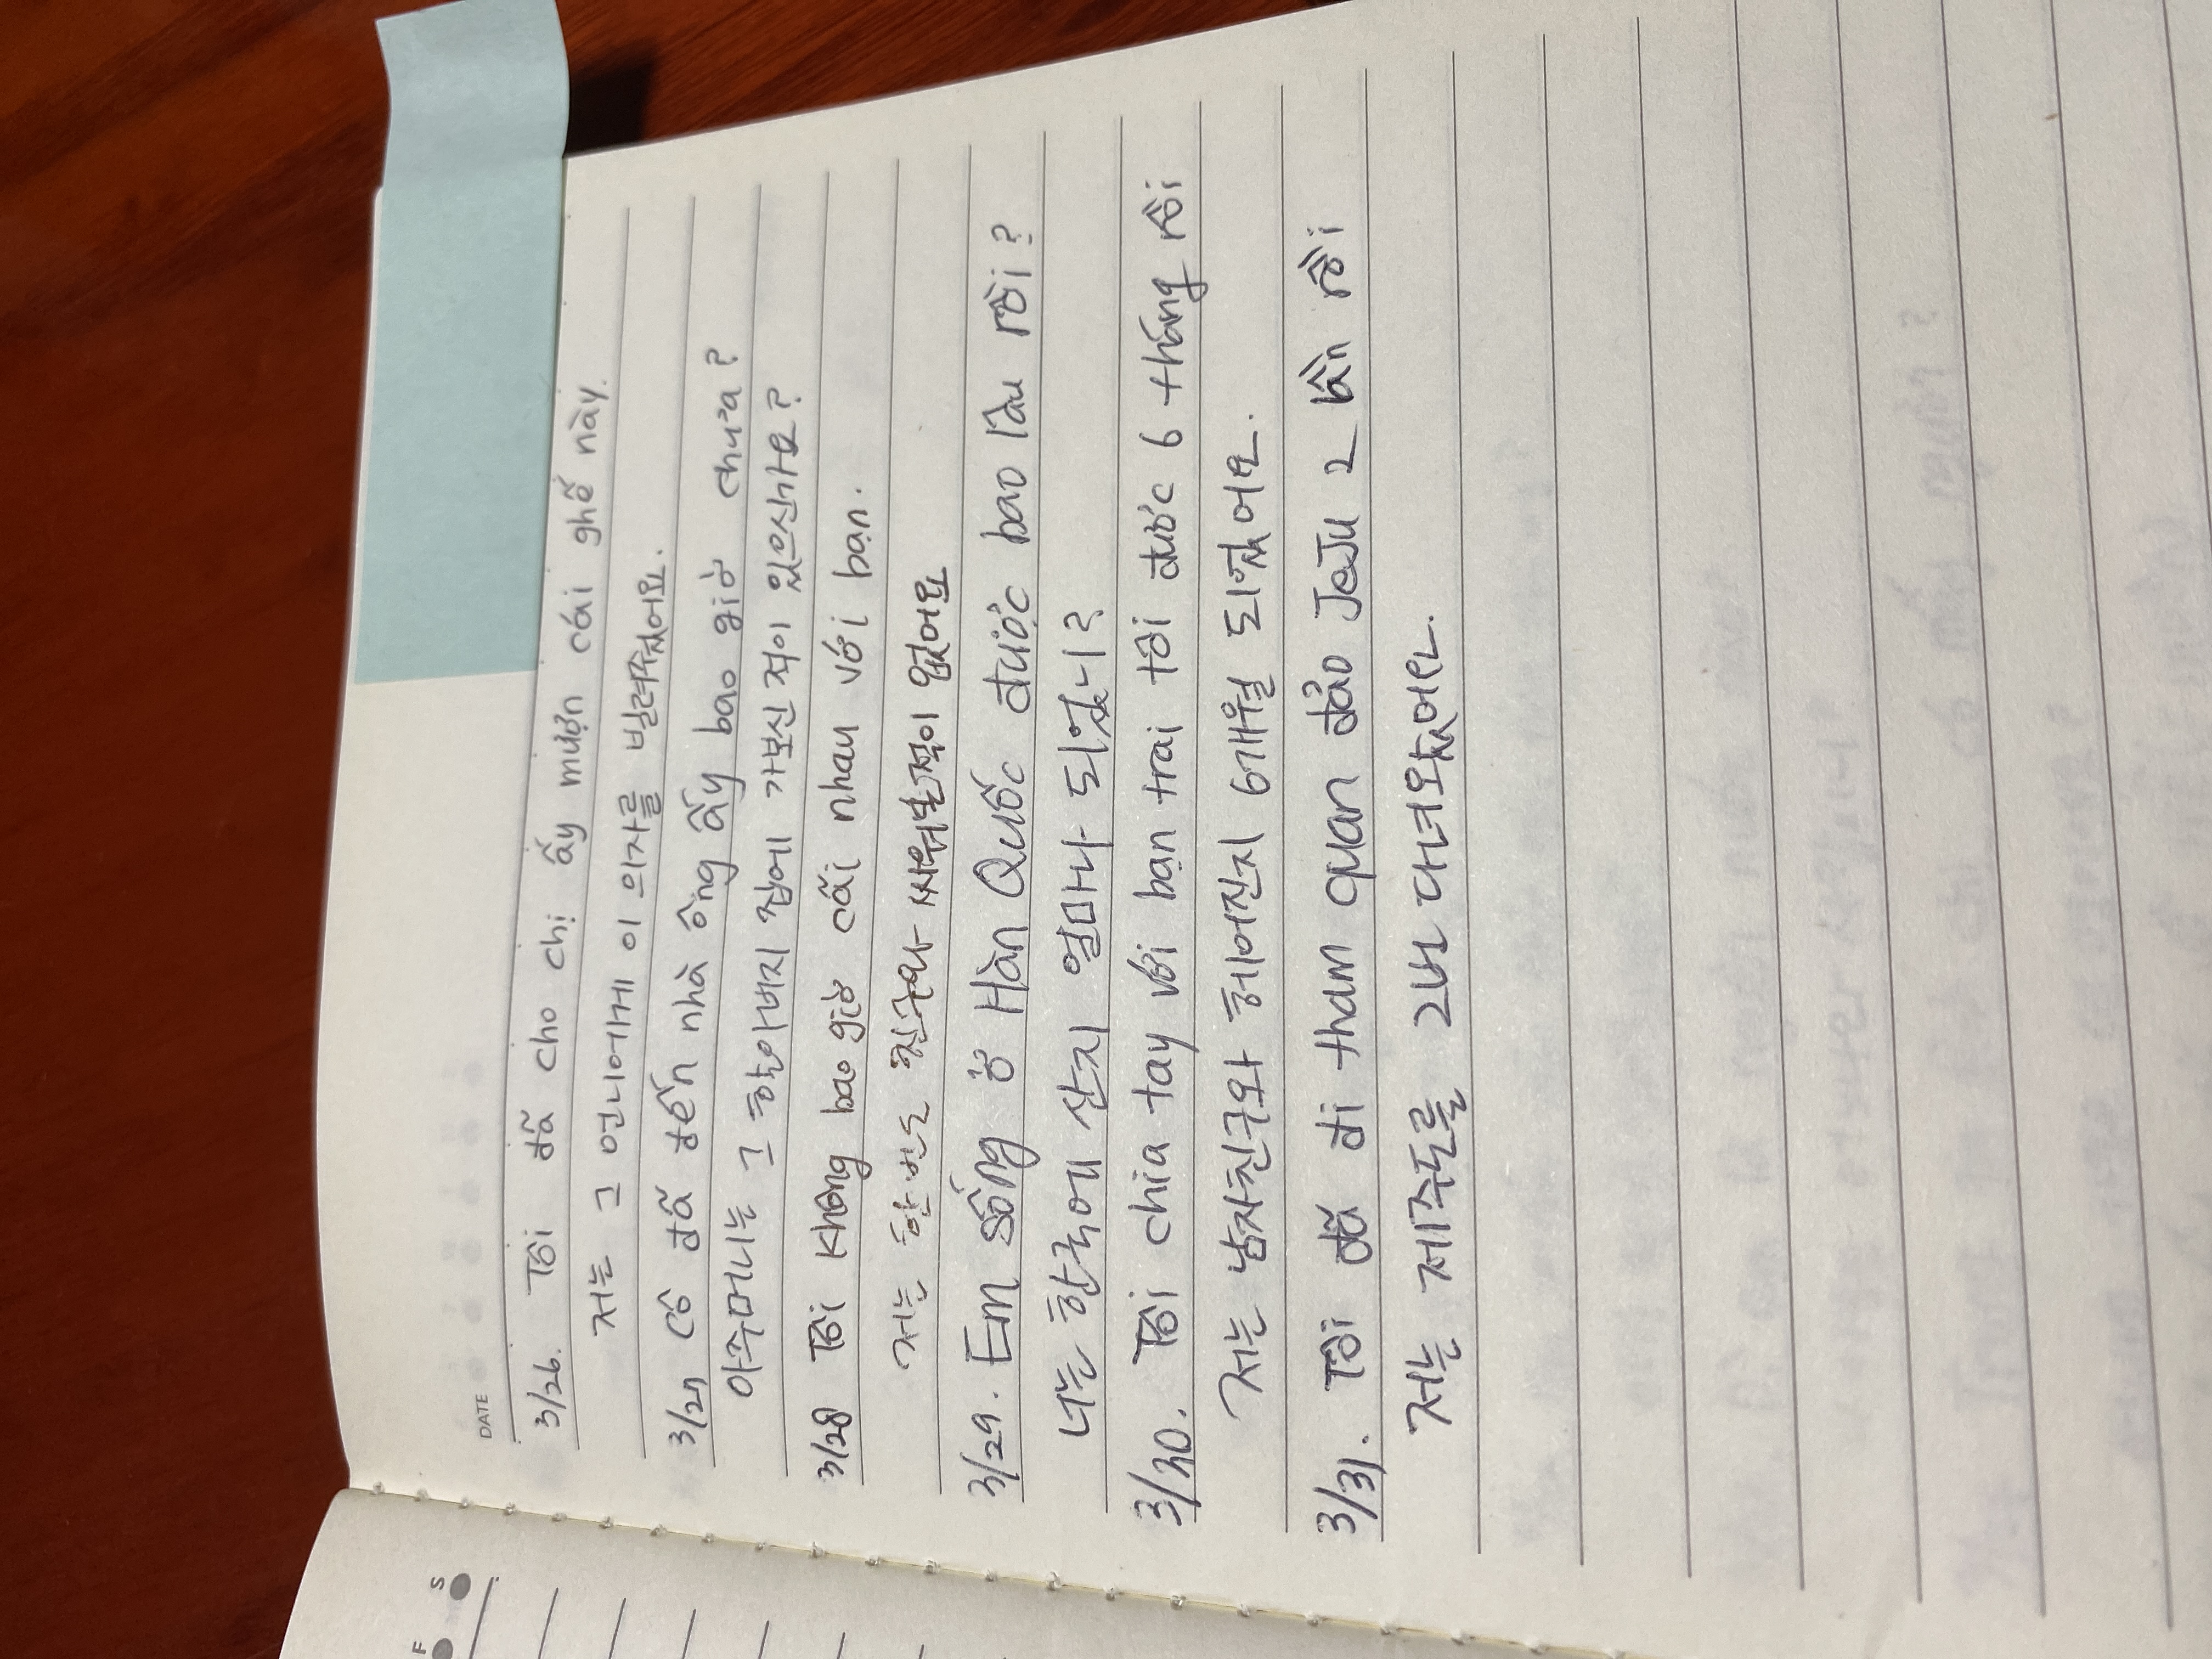 DATE
3/26. Tôi đã cho chị ấy mượn cái ghế này.
저는 그 언니에게 이 의자를 빌려주었어요.
3/27 Cô đã đến nhà ông ấy bao giờ chưa?
아주머니는 그 할아버지 집에 가보신 적이 있으신가요?
3/28 Tôi không bao giờ cãi nhau với bạn.
저는 한번도 친구와 싸워본적이 없어요
3/29. Em sống ở Hàn Quốc được bao lâu rồi?
너는 한국에 산지 얼마나 되었니?
3/30. Tôi chia tay với bạn trai tôi được 6 tháng rồi
저는 남자친구와 헤어진지 6개월 되었어요.
3/31. Tôi đã đi tham quan đảo JeJu 2 lần rồi
저는 제주도를 2번 다녀왔어요.
F S